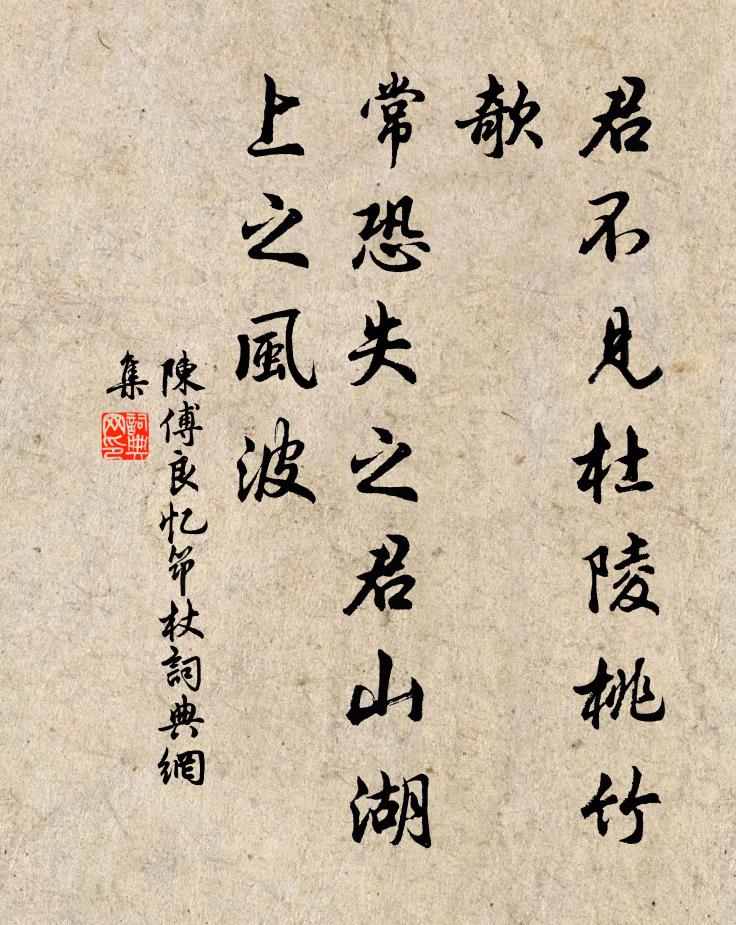 君不見杜陵桃竹
欹
常恐失之君山湖
上之風波
陳傅良忆筇杖詞典網
集
詞典
网印